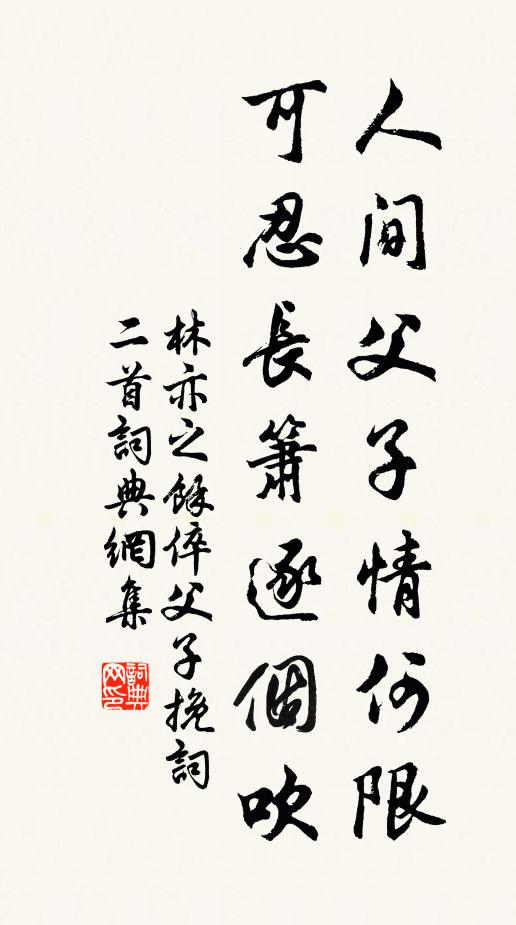 人間父子情何限
可忍長簫逐個吹
林亦之餘倅父子挽詞
二首詞典網集
詞典
网印